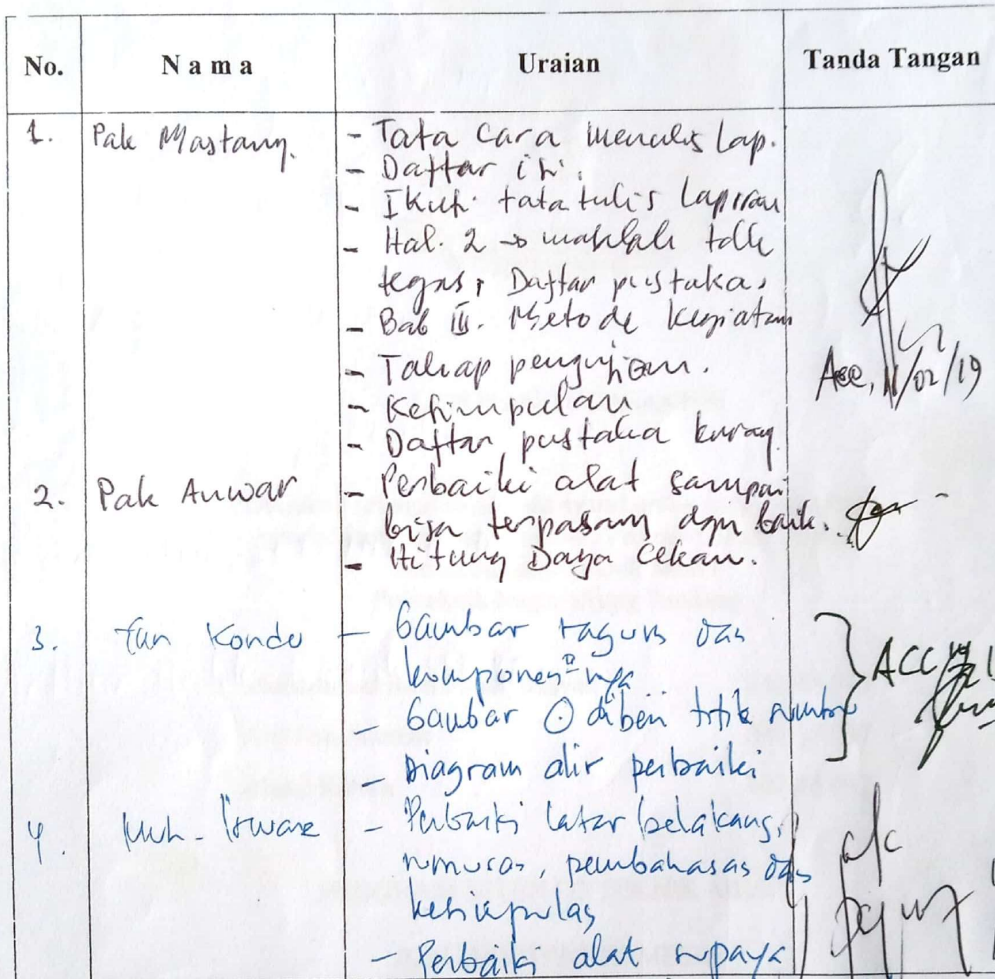 No. N a m a Uraian Tanda Tangan
1. Pak Mastang. - Tata cara menulis Lap.
- Daftar isi.
- Ikuti tata tulis Laporan
- Hal. 2 → masalah tdk
tegas, Daftar pustaka.
- Bab III. Metode kegiatan
- Tahap pengujian.
- Kesimpulan
- Daftar pustaka kurang
Acc, 11/02/19
2. Pak Anwar - Perbaiki alat sampai
bisa terpasang dgn baik.
- Hitung Daya Cekam.
3. Kondo - Gambar ragum dan
komponen nya
Gambar diberi titik
- Diagram alir perbaiki
ACC
4. Muh. - Perbaiki latar belakang,
rumusan, pembahasan dan
kesimpulan
- Perbaiki alat supaya